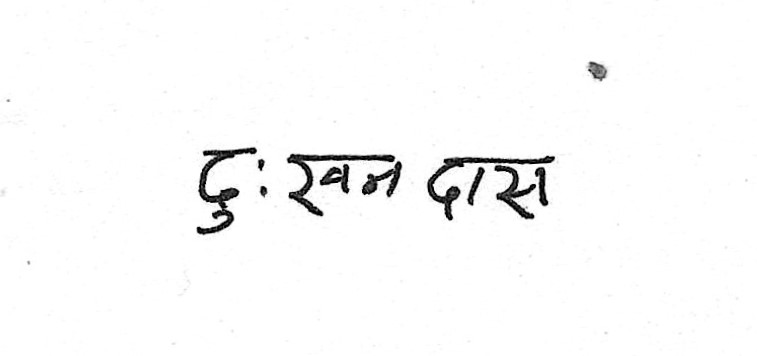 दुःखन दास